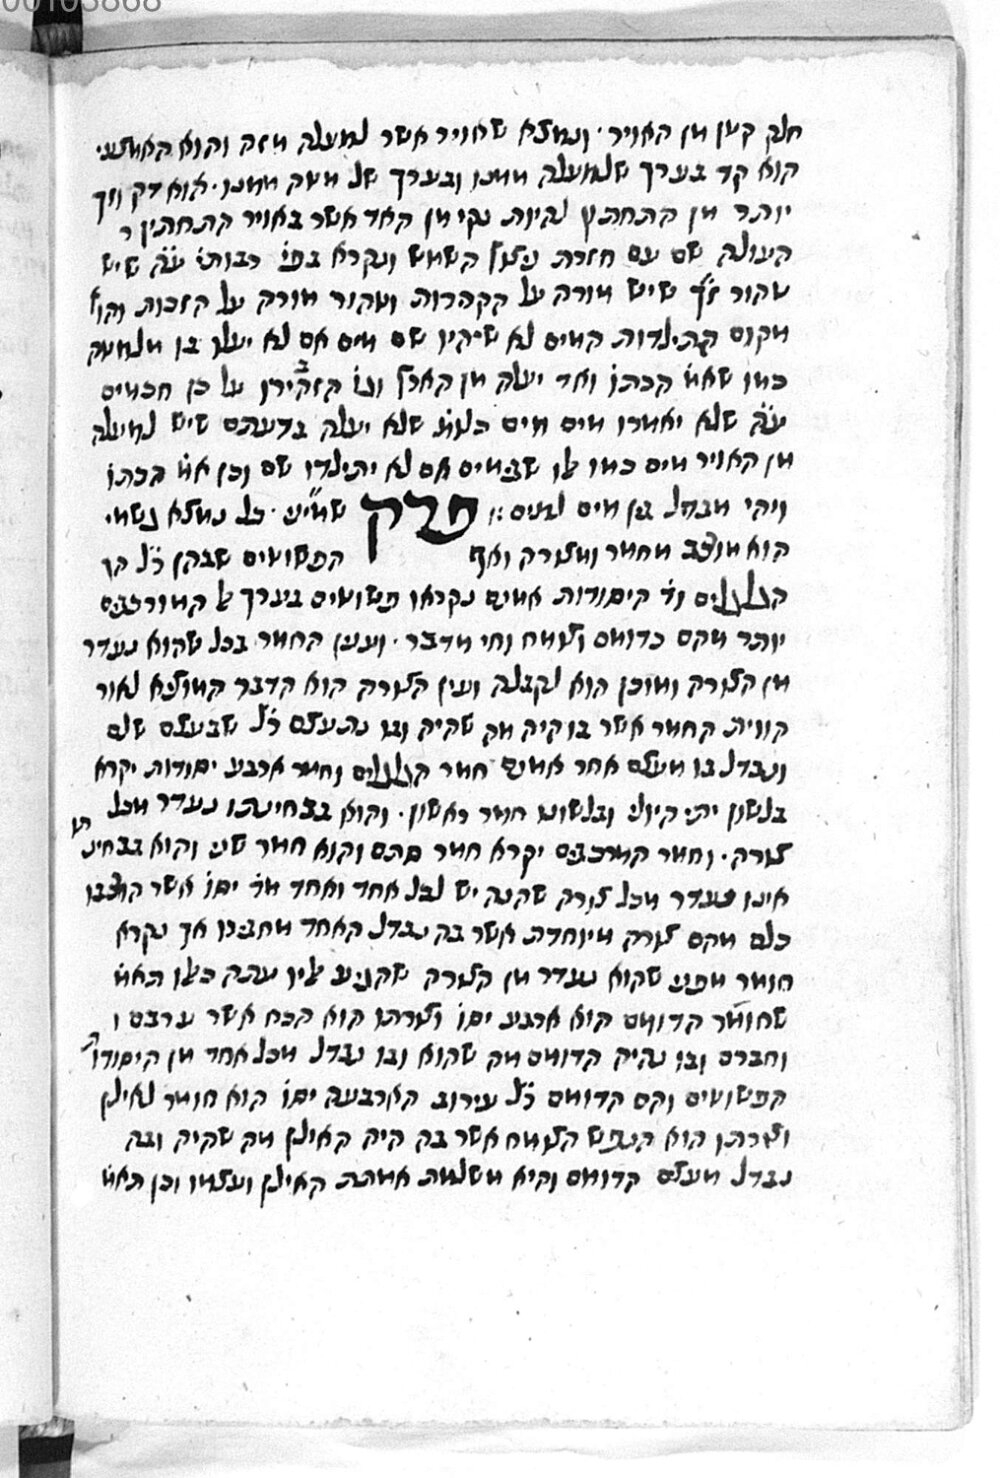 חלק קטן מן האויר. ונמצא שאויר אשר למעלה מזה והוא האמצעי
הוא קר בערך שלמעלה ממנו ובערך של מטה ממנו. הוא דק וזך
יותר מן התחתון נקיות נקי מן האד אשר באויר התחתון ר
העולה שם עם חזרת ניצוץ השמש ונקרא בפי׳ רבותי׳ ע״ה שיש
מקור ז״ך שיש מורה על הקהרות ומקור מורה על הזכות והוא
מקום התילדות המים לא שיהיו שם מים אם לא יעלו בו מלמטה
כמו שאמ׳ הכתו׳ ואד יעלה מן הארץ וגו׳ הזהירו על כן חכמים
ע״ה שלא יאמרו מים מים כלומ׳ שלא יעלה בדעתם שיש למעלה
מן האויר מים כמו אלו שבימים אם לא יתילדו שם וכן אמ׳ הכתו׳
ויהי מבדל בין מים למים :׃ פרק שמיני. כל נמצא גשמי
הוא מורכב מחמר ומצורה ואף הפשוטים שבהן ר״ל הן
הגלגלים וד׳ היסודות אמנם נקראו פשוטים בערך אל המורכבים
יותר מהם כדומם וצומח וחי מדבר. וענין החמר בכל שהוא נעדר
מן הצורה ומוכן הוא לקבלה וענין הצורה הוא הדבר המוציא לאור
הווית החמר אשר בו היה מה שהיה ובו נתעצם ר״ל שבעצם שלם
ונבדל בו מעצם אחר אמנם חמר הגלגלים וחמר ארבע יסודות יקרא
בלשון יוני היולי ובלשונו חמר ראשון. והוא בבחינתו נעדר מכל
צורה. וחמר המרכבים יקרא חמר סתם והוא חמר שני והוא בבחינתו
אינו נעדר מכל צורה שהנה יש לכל אחד ואחד מד׳ יסו׳ אשר הורכבו
כלם מהם צורה מיוחדת אשר בה נבדל האחד מחבירו אך נקרא
חומר מפני שהוא נעדר מן הצורה שהגיע אליו עתה כאלו תאמ׳
שחומר הדומם הוא ארבע יסו׳ וצורתו הוא הכח אשר ערבם ו
וחברם ובו נהיה הדומם מה שהוא ובו נבדל מכל אחד מן היסודות
הפשוטים והם הדומם ר״ל עירוב הארבעה יסו׳ הוא חומר לאילן
וצורתו הוא הנפש הצומח אשר בה היה האילן מה שהיה ובה
נבדל מעצם הדומם והיא משלמת אמתת האילן ועצמו וכן תאמ׳